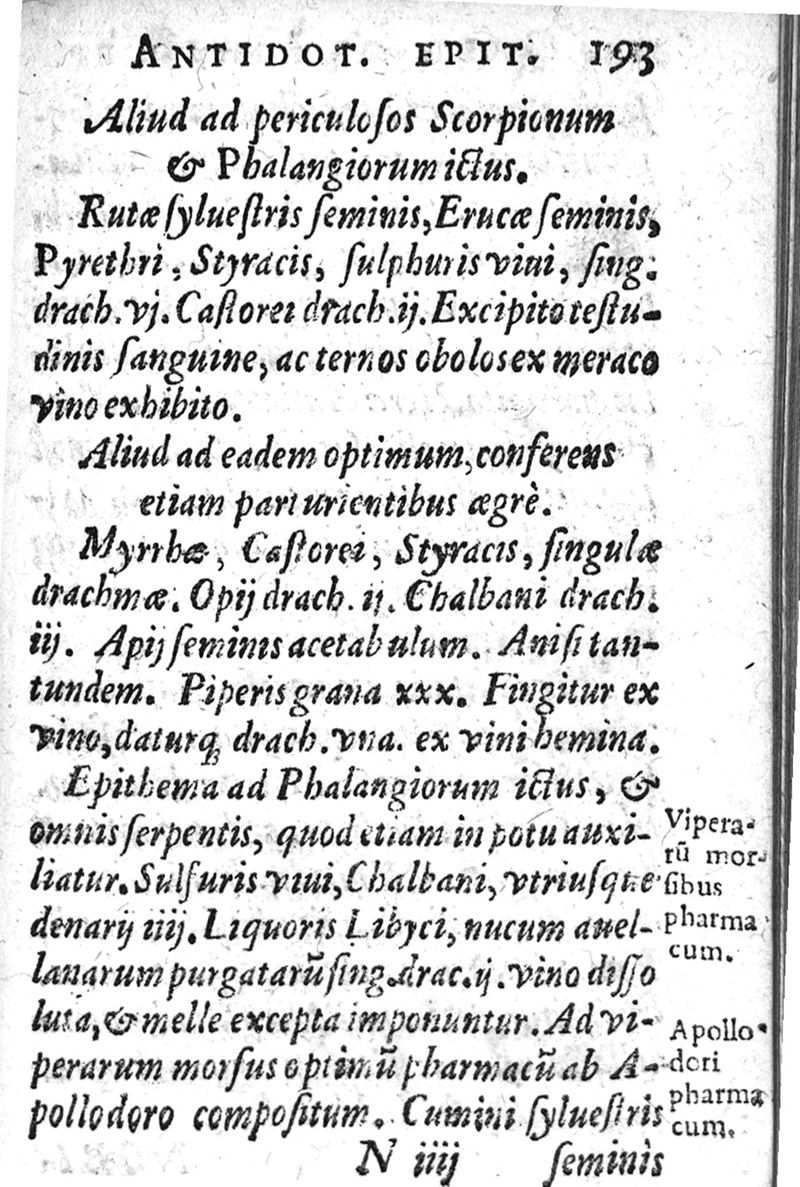 ANTIDOT. EPIT. 193
Aliud ad periculoſos Scorpionum
& Phalangiorum ictus.
Rutæ ſylueſtris ſeminis, Erucæ ſeminis,
Pyrethri, Styracis, ſulphuris viui, ſing.
drach. vj. Caſtorei drach. ij. Excipito teſtu-
dinis ſanguine, ac ternos obolos ex meraco
vino exhibito.
Aliud ad eadem optimum, conferens
etiam parturientibus ægrè.
Myrrhæ, Caſtorei, Styracis, ſingulæ
drachmæ. Opij drach. ij. Chalbani drach.
iij. Apij ſeminis acetabulum. Aniſi tan-
tundem. Piperis grana xxx. Fingitur ex
vino, daturq; drach. vna. ex vini hemina.
Epithema ad Phalangiorum ictus, &
omnis ſerpentis, quod etiam in potu auxi-
liatur. Sulfuris viui, Chalbani, vtriuſque
denarij iiij. Liquoris Libyci, nucum auel-
lanarum purgatarū ſing. drac. ij. vino diſſo
luta, & melle excepta imponuntur. Ad vi-
perarum morſus optimū pharmacū ab A-
pollodoro compoſitum. Cumini ſylueſtris
N iiij ſeminis
Vipera-
rū mor-
ſibus
pharma
cum.
Apollo-
dori
pharma
cum.